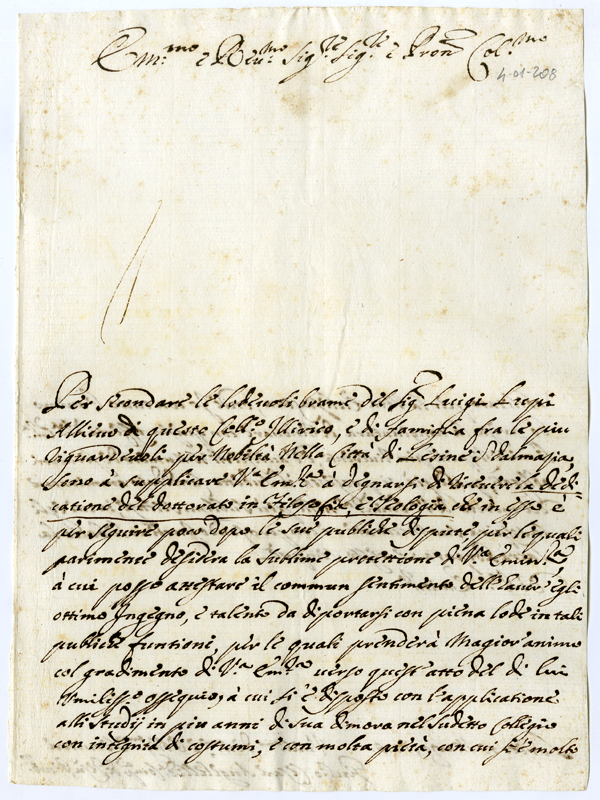 Em.mo e Reu.mo Sig.re Sig.re e Pron Col.mo
4-01-208
Per secondare le lodeuoli brame del Sig Luigi Lupi
Allieuo di questo Coll.o Illirico, e di famiglia fra le piu
riguardeuoli per Nobiltà nella Città di Lesina in Dalmazia,
uengo à supplicare V.a Em.za à degnarsi di riceuere la dedi-
catione del dottorato in Filosofia e Teologia che in esse è
per seguire poco dopo le sue publiche dispute per le quali
parimente desidera la sublime protettione di V.ra Emin.za
à cui posso attestare il commun sentimento dell'hauer Egli
ottimo Ingegno, e talento da diportarsi con piena lode in tali
publiche funtioni, per le quali prenderà Magior animo
col gradimento di V.ra Em.za uerso quest'atto del di lui
Vmiliss.o ossequio, à cui si è disposto con l'applicatione
alli studij in piu anni di sua dimora nel sudetto Collegio
con integrità di costumi, e con molta pietà, con cui si è molto